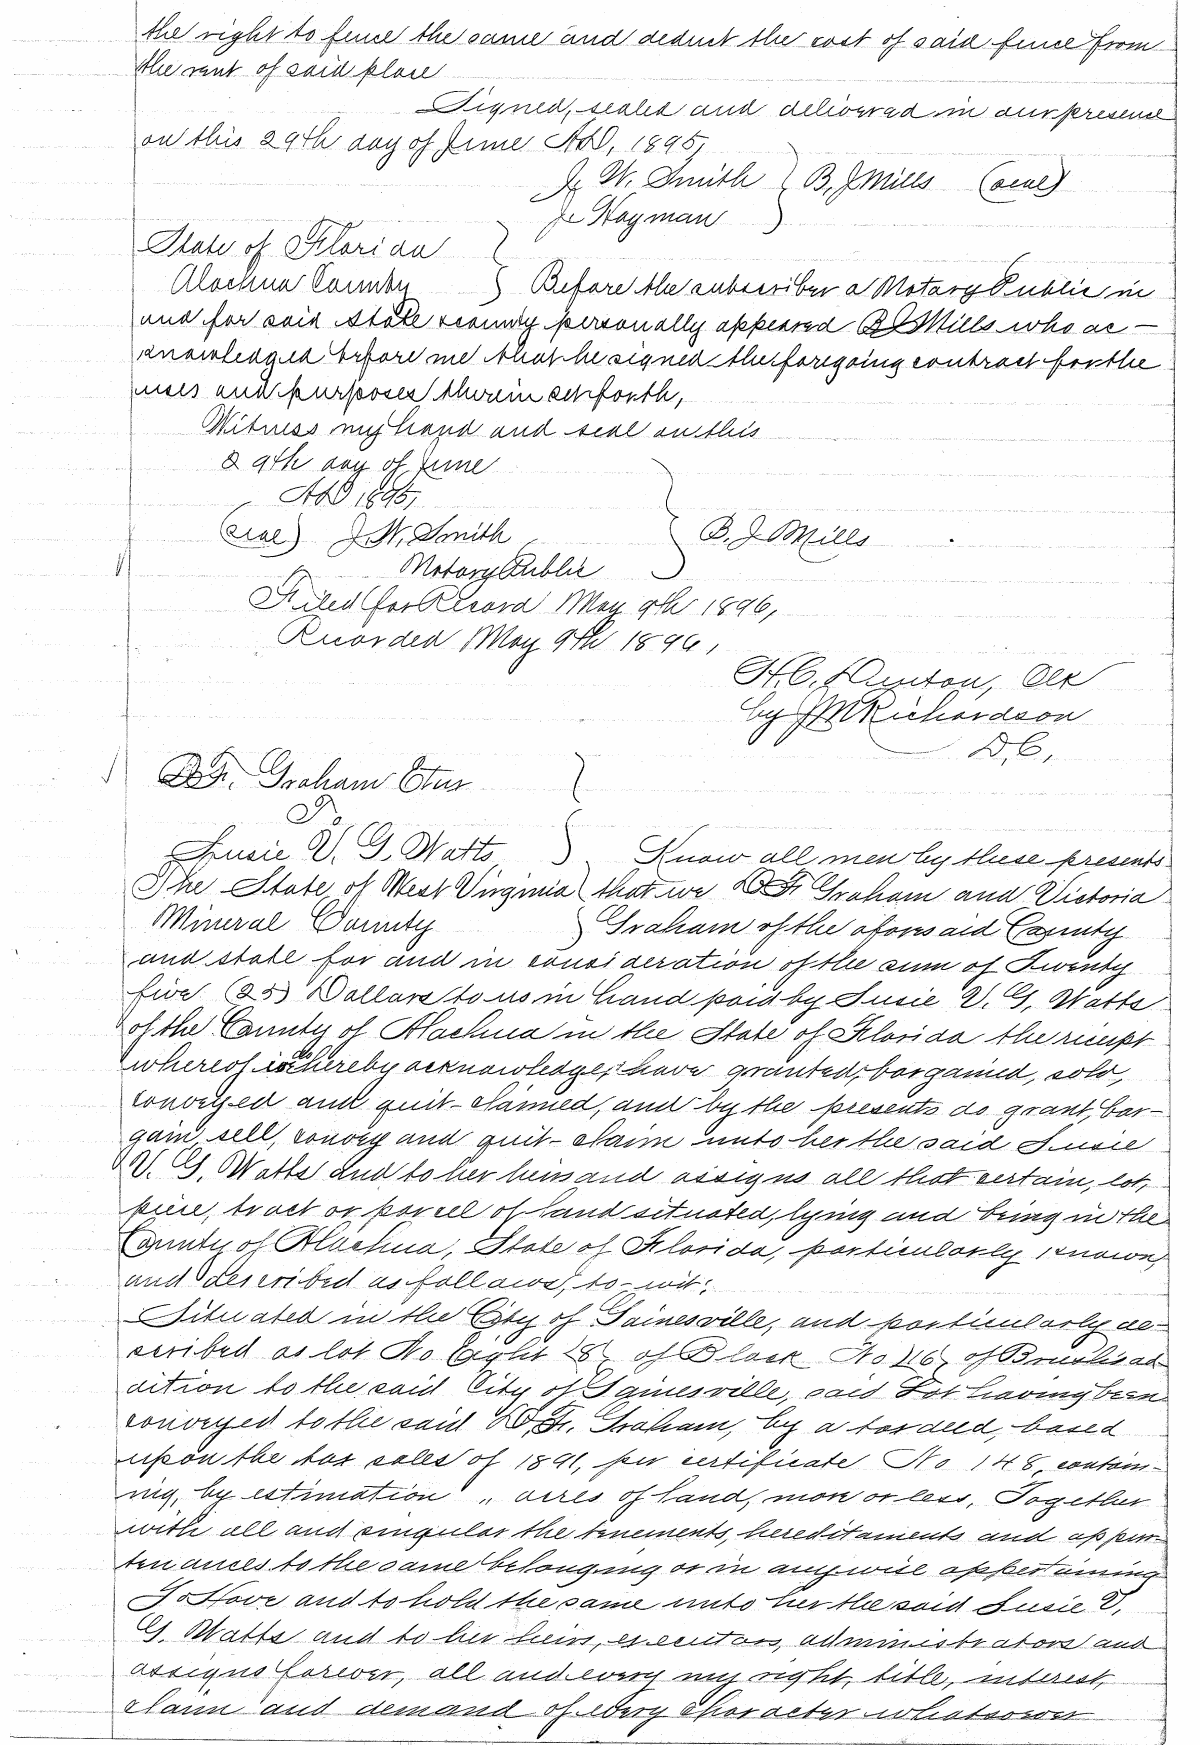 the right to fence the same and deduct the cost of said fence from
the rent of said place
Signed, sealed and delivered in our presence
on this 29th day of June A.D, 1895,
J. W. Smith } B. J Mills (seal)
J. Hayman
State of Florida
Alachua County } Before the subscriber a Notary Public in
and for said state & county personally appeared B J Mills who ac-
knowledged before me that he signed the foregoing contract for the
uses and purposes therein set forth,
Witness my hand and seal on this
29th day of June
A.D 1895,
(seal) J. W. Smith } B. J Mills
Notary Public
Filed for Record May 9th 1896,
Recorded May 9th 1896,
H. C. Denton, Clk
by J M Richardson
D. C,
D. F. Graham Etux
To
Susie V. G. Watts } Know all men by these presents
The State of West Virginia } that we D F Graham and Victoria
Mineral County } Graham of the aforesaid County
and state for and in consideration of the sum of Twenty
five (25) Dollars to us in hand paid by Susie V. G. Watts
of the County of Alachua in the State of Florida the reciept
whereof is hereby acknowledge, have granted, bargained, sold,
conveyed and quit-claimed, and by the presents do grant, bar-
gain, sell, convey and quit-claim unto her the said Susie
V. G. Watts and to her heirs and assigns all that certain, lot,
piece, tract or parcel of land situated, lying and being in the
County of Alachua, State of Florida, particularly known,
and described as follows, to-wit:
Situated in the City of Gainesville, and particularly de-
scribed as lot No Eight (8) of Block No (16) of Brush's ad-
dition to the said City of Gainesville, said Lot having been
conveyed to the said D. F. Graham, by a tax deed, based
upon the tax sales of 1891, per certificate No 148, contain-
ing, by estimation " acres of land, more or less, Together
with all and singular the tenements, hereditaments and appur-
tenances to the same belonging or in anywise appertaining
To Have and to hold the same unto her the said Susie V.
G. Watts and to her heirs, executors, administrators and
assigns forever, all and every my right, title, interest,
claim and demand of every character whatsoever